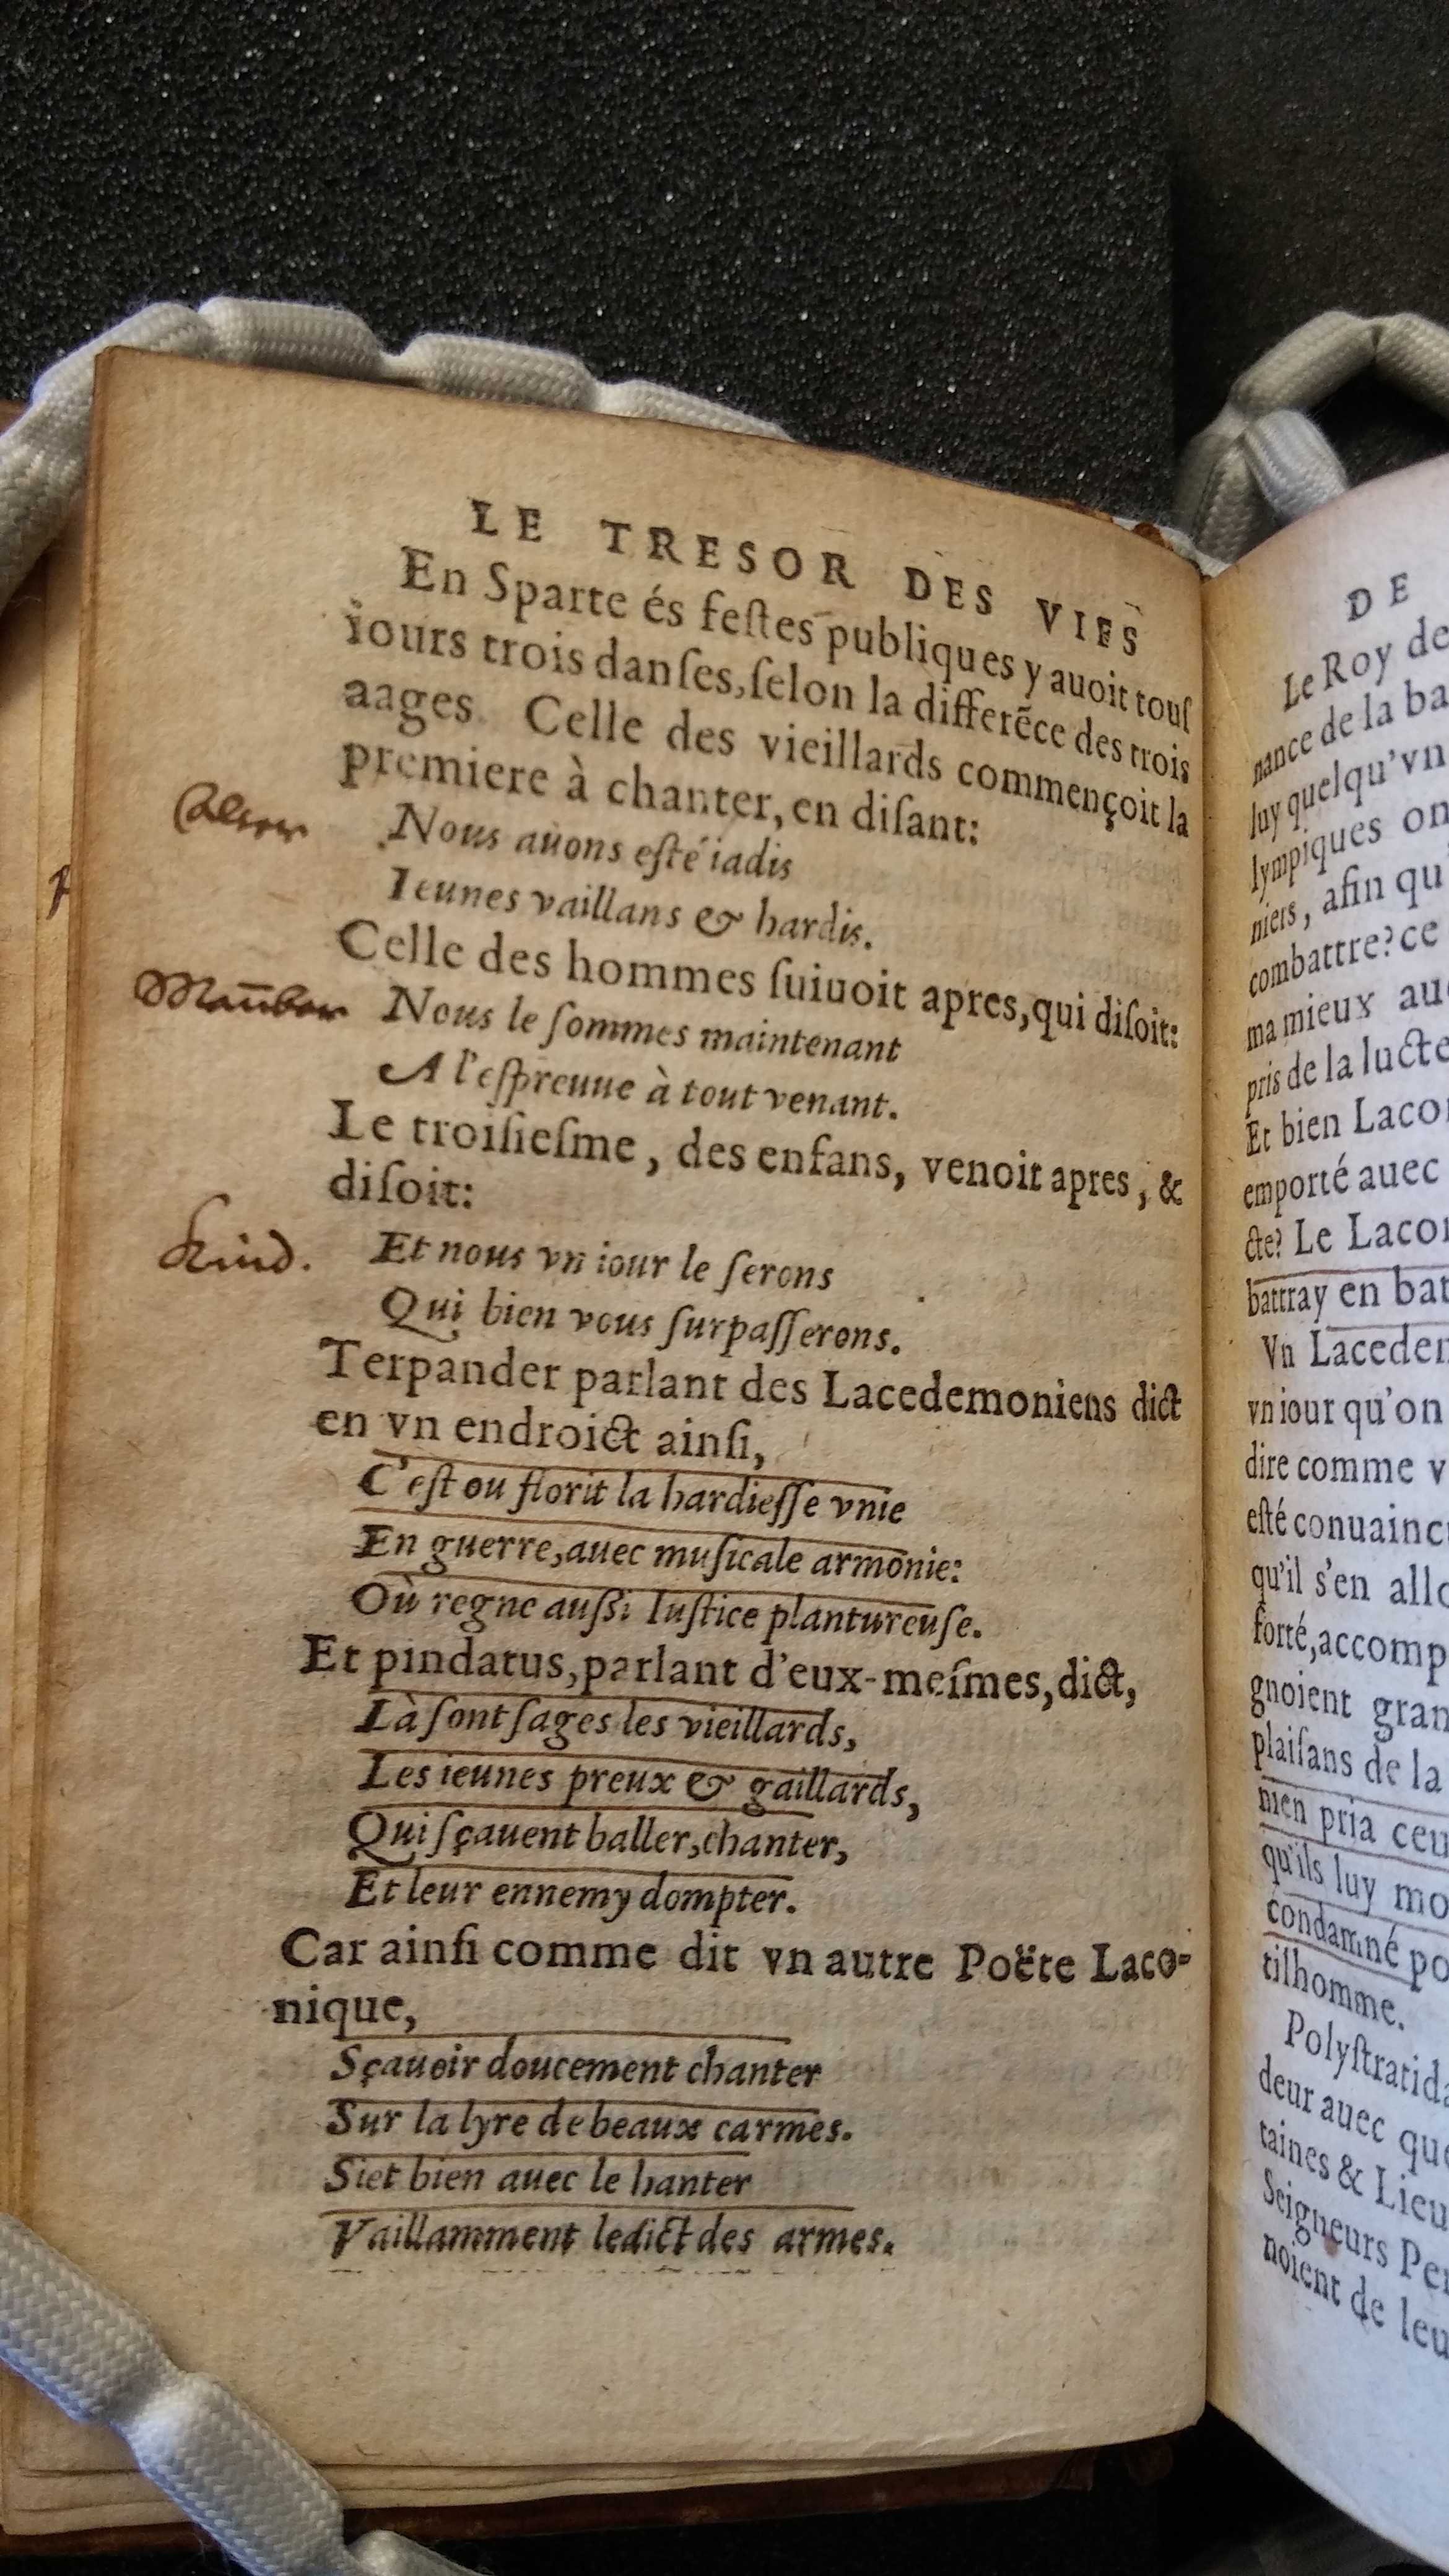 LE TRESOR DES VIES
En Sparte és feſtes publiques y auoit touſ
iours trois danſes, ſelon la differẽce des trois
aages. Celle des vieillards commençoit la
premiere à chanter, en diſant:
Nous auons eſté iadis
Ieunes vaillans & hardis.
Celle des hommes ſuiuoit apres, qui diſoit:
Nous le ſommes maintenant
A l'eſpreuue à tout venant.
Le troiſieſme, des enfans, venoit apres, &
diſoit:
Kind.
Et nous vn iour le ſerons
Qui bien vous ſurpaſſerons.
Terpander parlant des Lacedemoniens dict
en vn endroict ainſi,
C'eſt ou florit la hardieſſe vnie
En guerre, auec muſicale armonie:
Où regne auſſi Iuſtice plantureuſe.
Et pindatus, parlant d'eux-meſmes, dict,
Là ſont ſages les vieillards,
Les ieunes preux & gaillards,
Qui ſçauent baller, chanter,
Et leur ennemy dompter.
Car ainſi comme dit vn autre Poëte Laco-
nique,
Sçauoir doucement chanter
Sur la lyre de beaux carmes.
Siet bien auec le hanter
Vaillamment ledict des armes.
DE
Le Roy de
nance de la ba
luy quelqu'vn
lympiques on
niers, afin qu'
combattre? ce
ma mieux au
pris de la lucte
Et bien Laco
emporté auec
cte? Le Laco
battray en bat
Vn Lacede
vn iour qu'on
dire comme v
eſté conuainc
qu'il s'en all
forté, accomp
gnoient gran
plaiſans de la
men pria ceu
qu'ils luy mo
condamné po
tilhomme.
Polyſtratid
deur auec qu
taines & Lieu
Seigneurs Pe
noient de leu